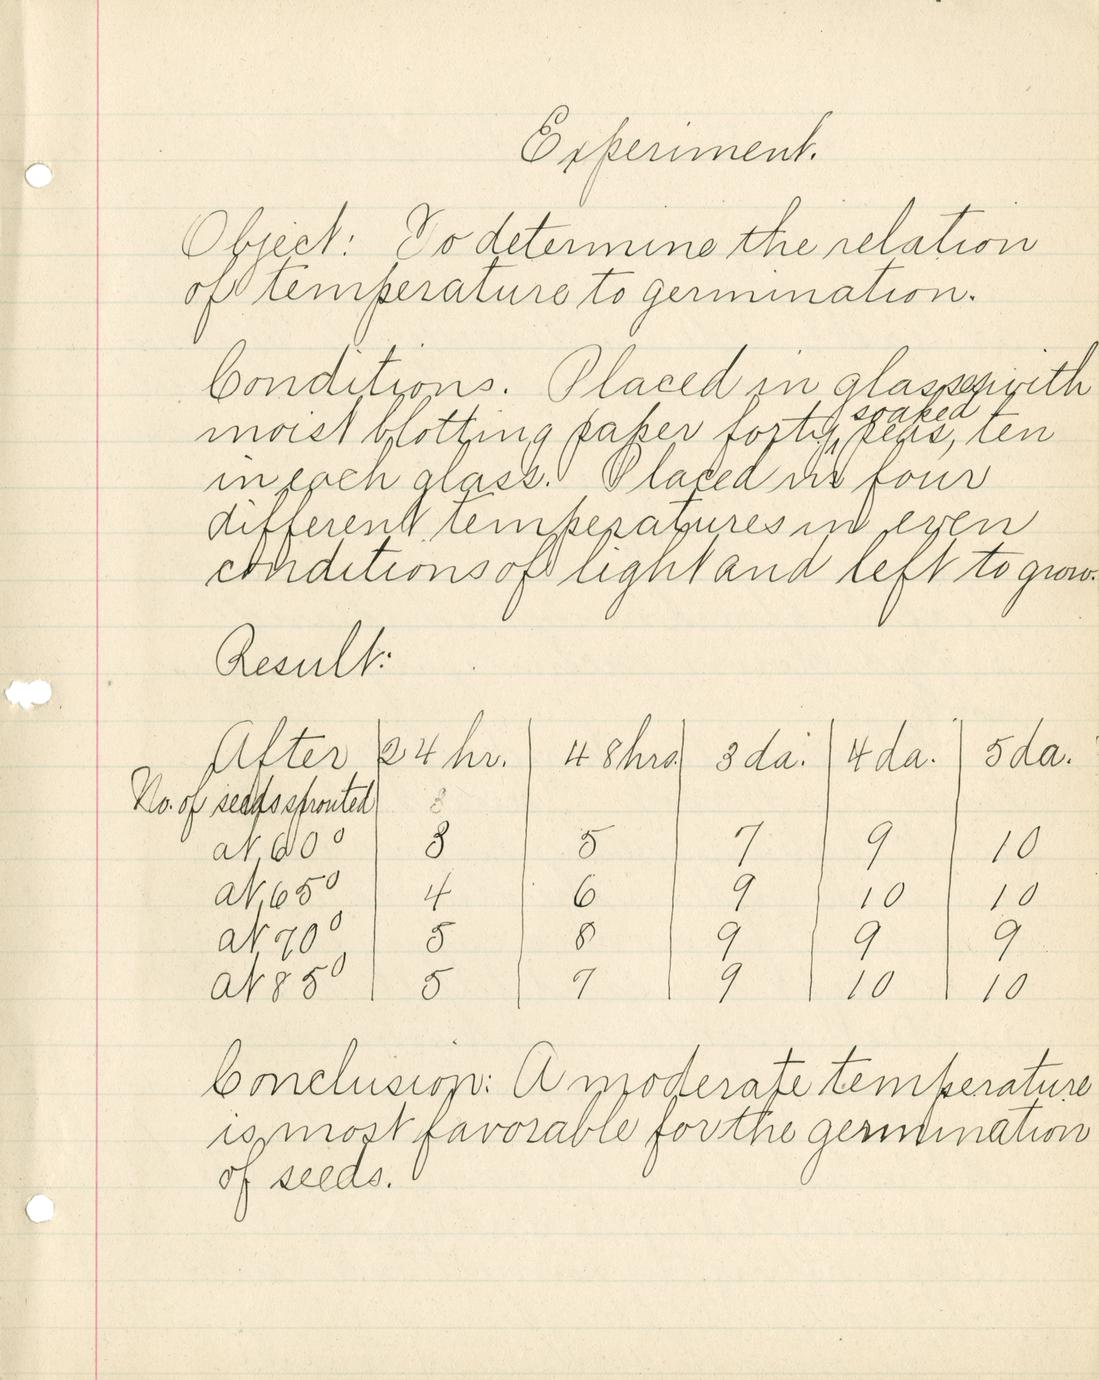 Experiment.
Object: To determine the relation
of temperature to germination.
Conditions. Placed in glasses with
moist blotting paper forty soaked peas, ten
in each glass. Placed in four
different temperatures in even
conditions of light and left to grow.
Result:
After 24 hr. 48 hrs. 3 da. 4 da. 5 da.
No. of seeds sprouted
at 60° 3 5 7 9 10
at 65° 4 6 9 10 10
at 70° 5 8 9 9 9
at 85° 5 7 9 10 10
Conclusion: A moderate temperature
is most favorable for the germination
of seeds.